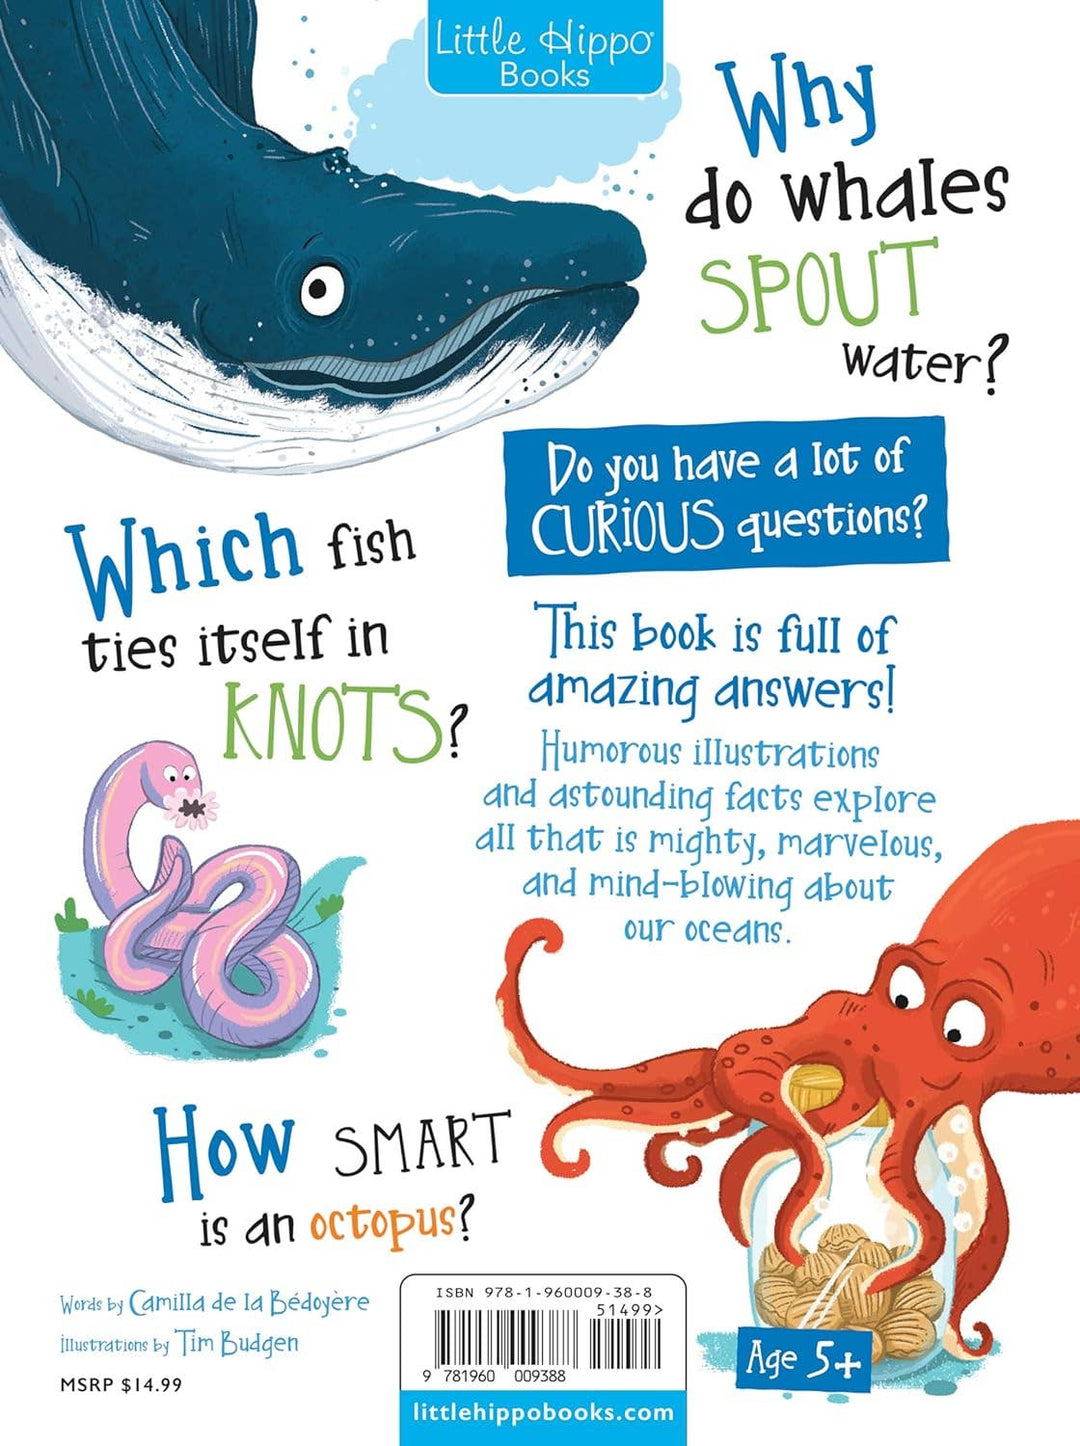 Little Hippo®
Books
Why
do whales
SPOUT
water?
Do you have a lot of
CURIOUS questions?
Which fish
ties itself in
KNOTS?
This book is full of
amazing answers!
Humorous illustrations
and astounding facts explore
all that is mighty, marvelous,
and mind-blowing about
our oceans.
How SMART
is an octopus?
Words by Camilla de la Bédoyère
Illustrations by Tim Budgen
MSRP $14.99
ISBN 978-1-960009-38-8
51499>
9 781960 009388
littlehippobooks.com
Age 5+